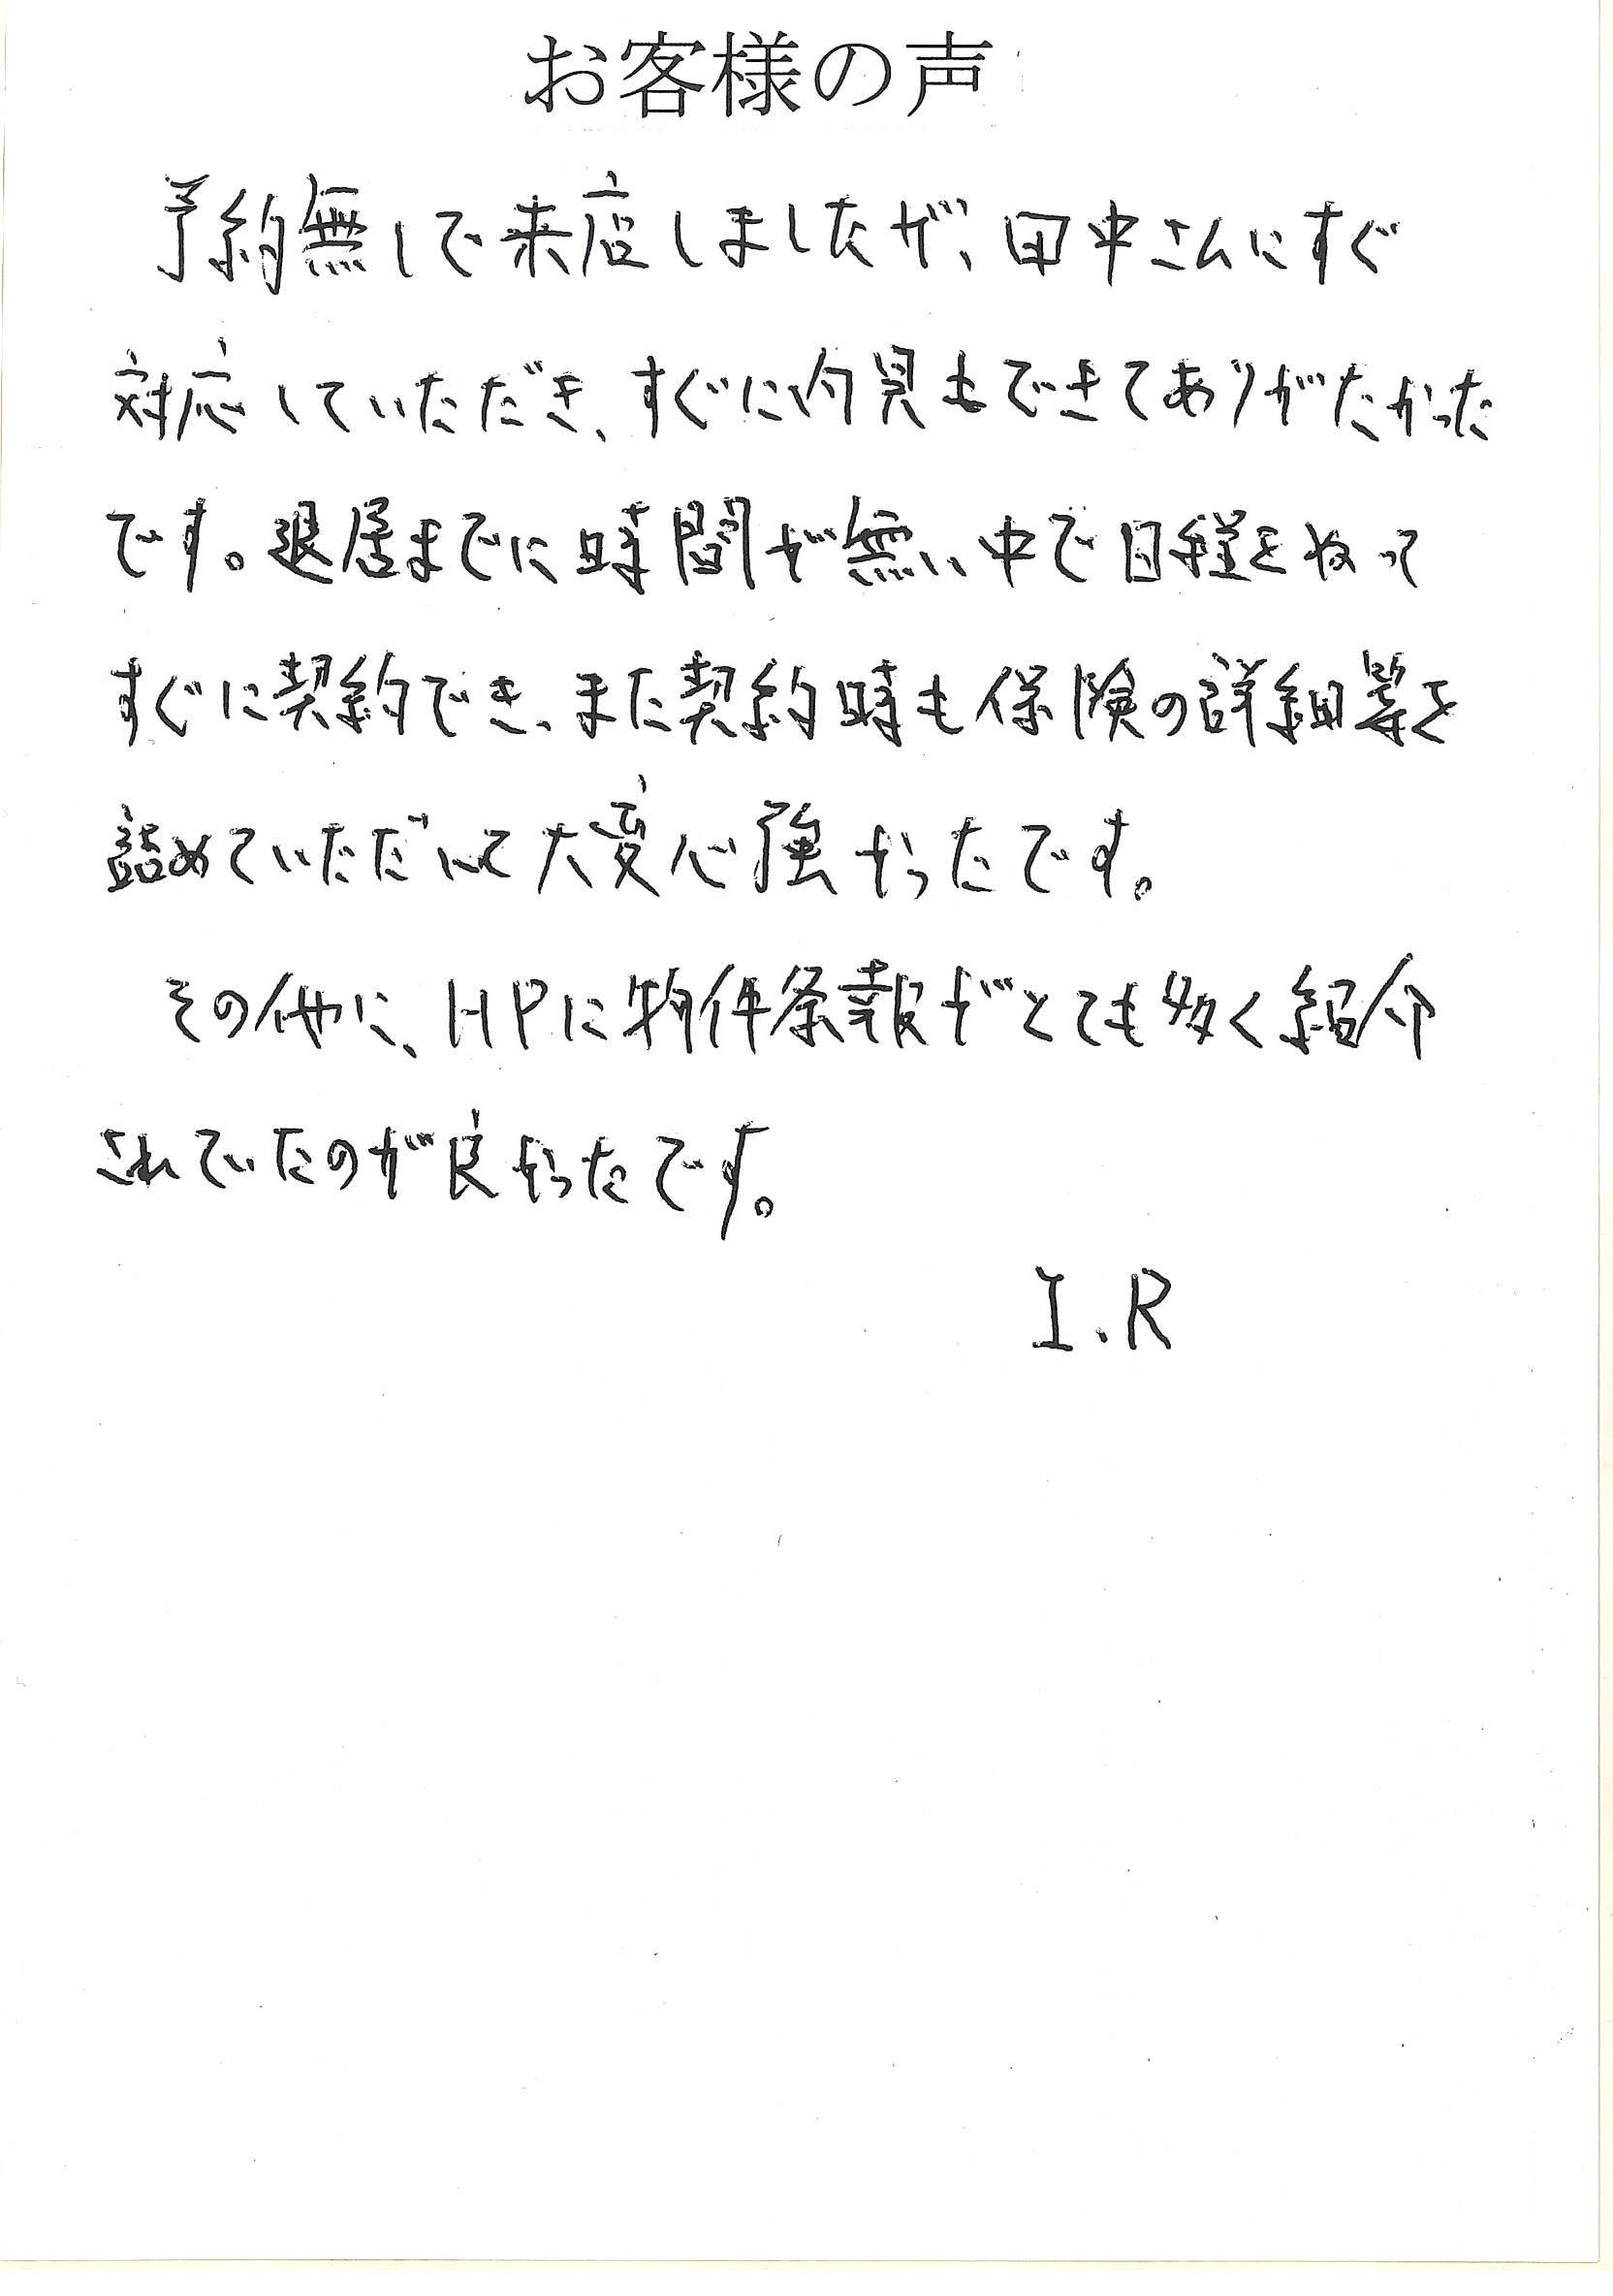 お客様の声
予約無しで来店しましたが、田中さんにすぐ
対応していただき、すぐに内見もできてありがたかった
です。退居までに時間が無い中で日程をねって
すぐに契約でき、また契約時も保険の詳細等を
詰めていただいて大変心強かったです。
その他に、HPに物件条報がとても多く紹介
されていたのが良かったです。
I.R